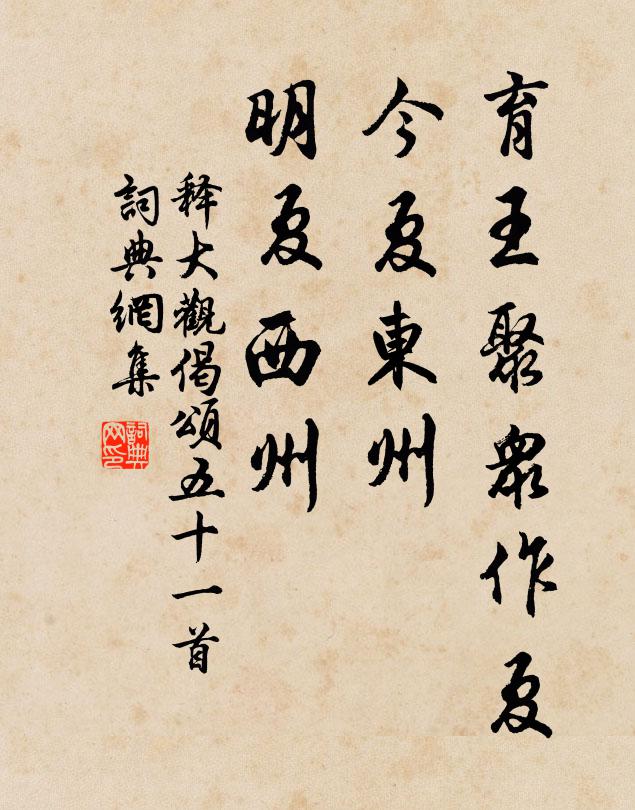 育王聚衆作夏
今夏東州
明夏西州
释大觀偈頌五十一首
詞典網集
詞典
网印